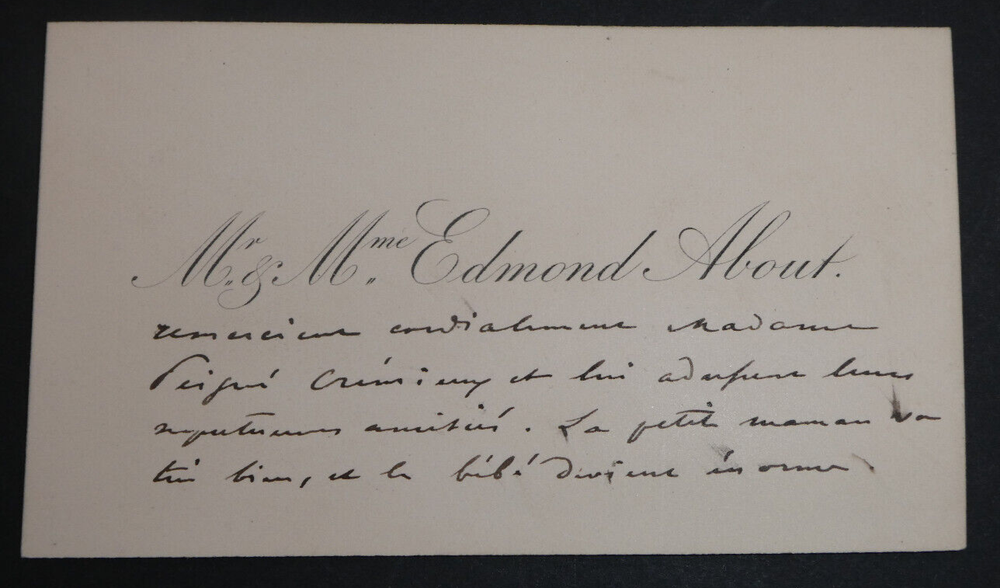 Mr. & Mme. Edmond About.
remercient cordialement Madame
Peigné Crémieux et lui adressent leurs
respectueuses amitiés. La petite maman va
très bien, et le bébé devient énorme.